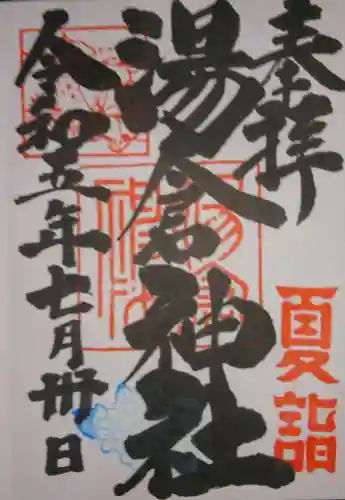 奉拝
夏詣
湯倉神社
令和五年七月卅日